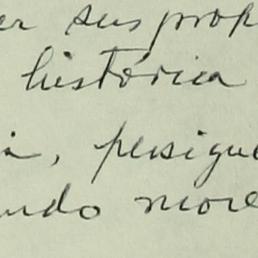 er sus prop
histórica
a, persigue
undo more